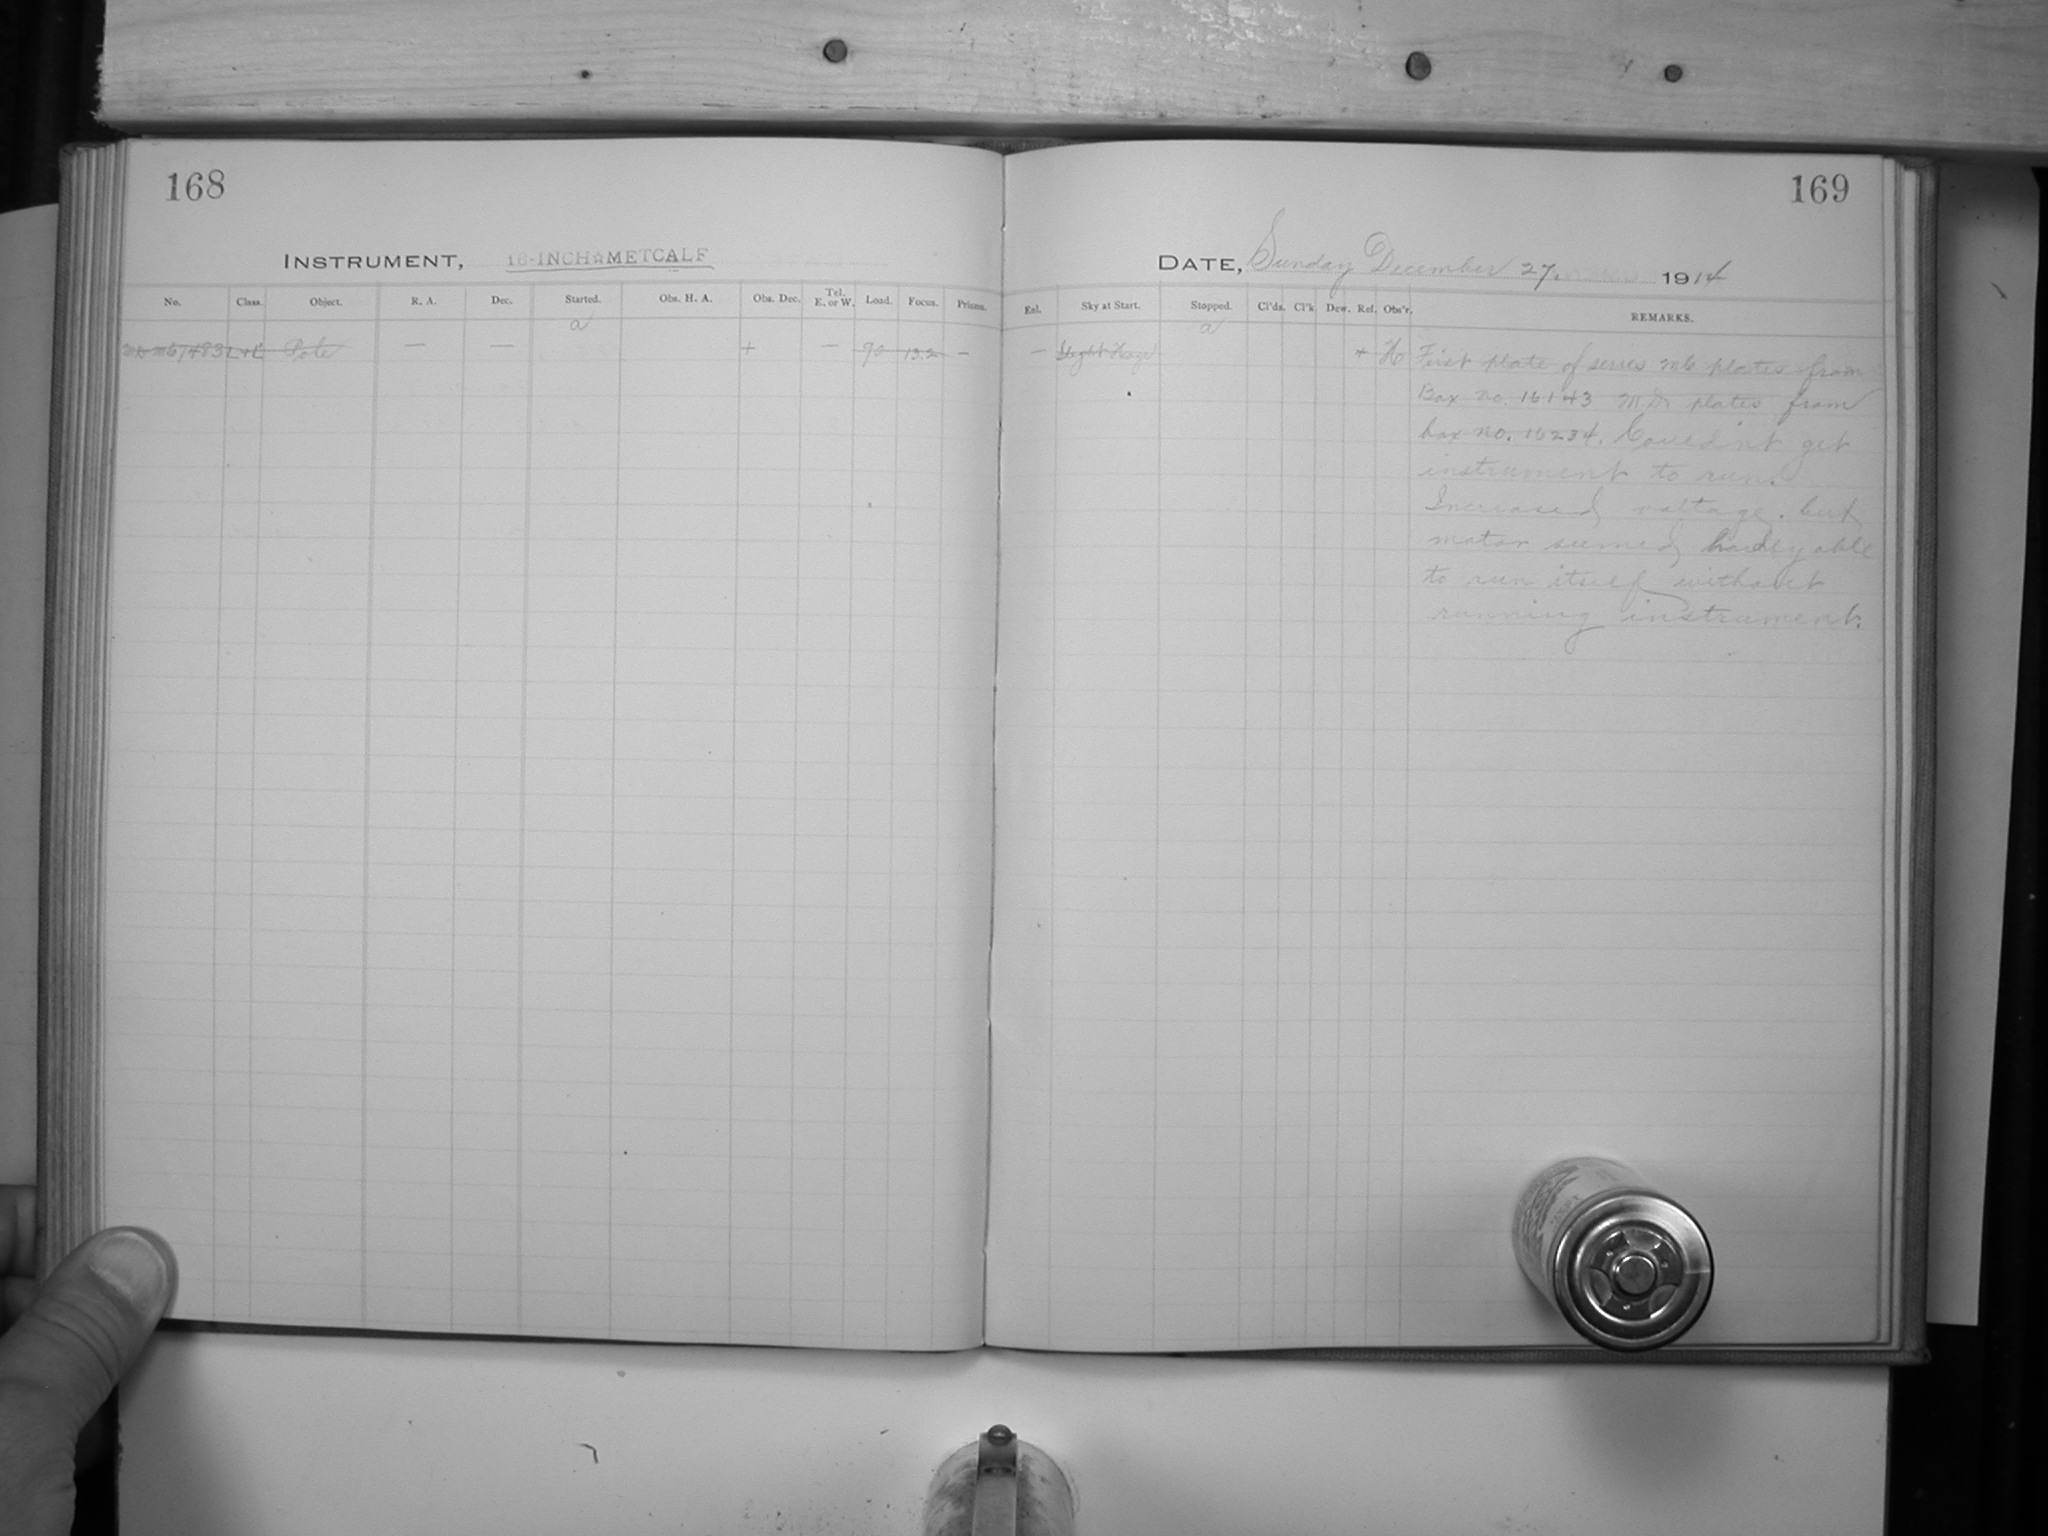 168
169
INSTRUMENT, 16-INCH☆METCALF
DATE, Sunday December 27, 1914
No. Class. Object. R. A. Dec. Started. Obs. H. A. Obs. Dec. Tel. E. or W. Load. Focus. Prisms.
Enl. Sky at Start. Stopped. Cl'ds. Cl'k Dew. Ref. Obs'r. REMARKS.
a
a
Pole — — + — 90 13.2 —
— Slight Haze + H First plate of series MC plates from
Box no. 16143 plates from
box no. 16234. Couldn't get
instrument to run.
Increased voltage. but
motor seemed hardly able
to run itself without
running instrument.